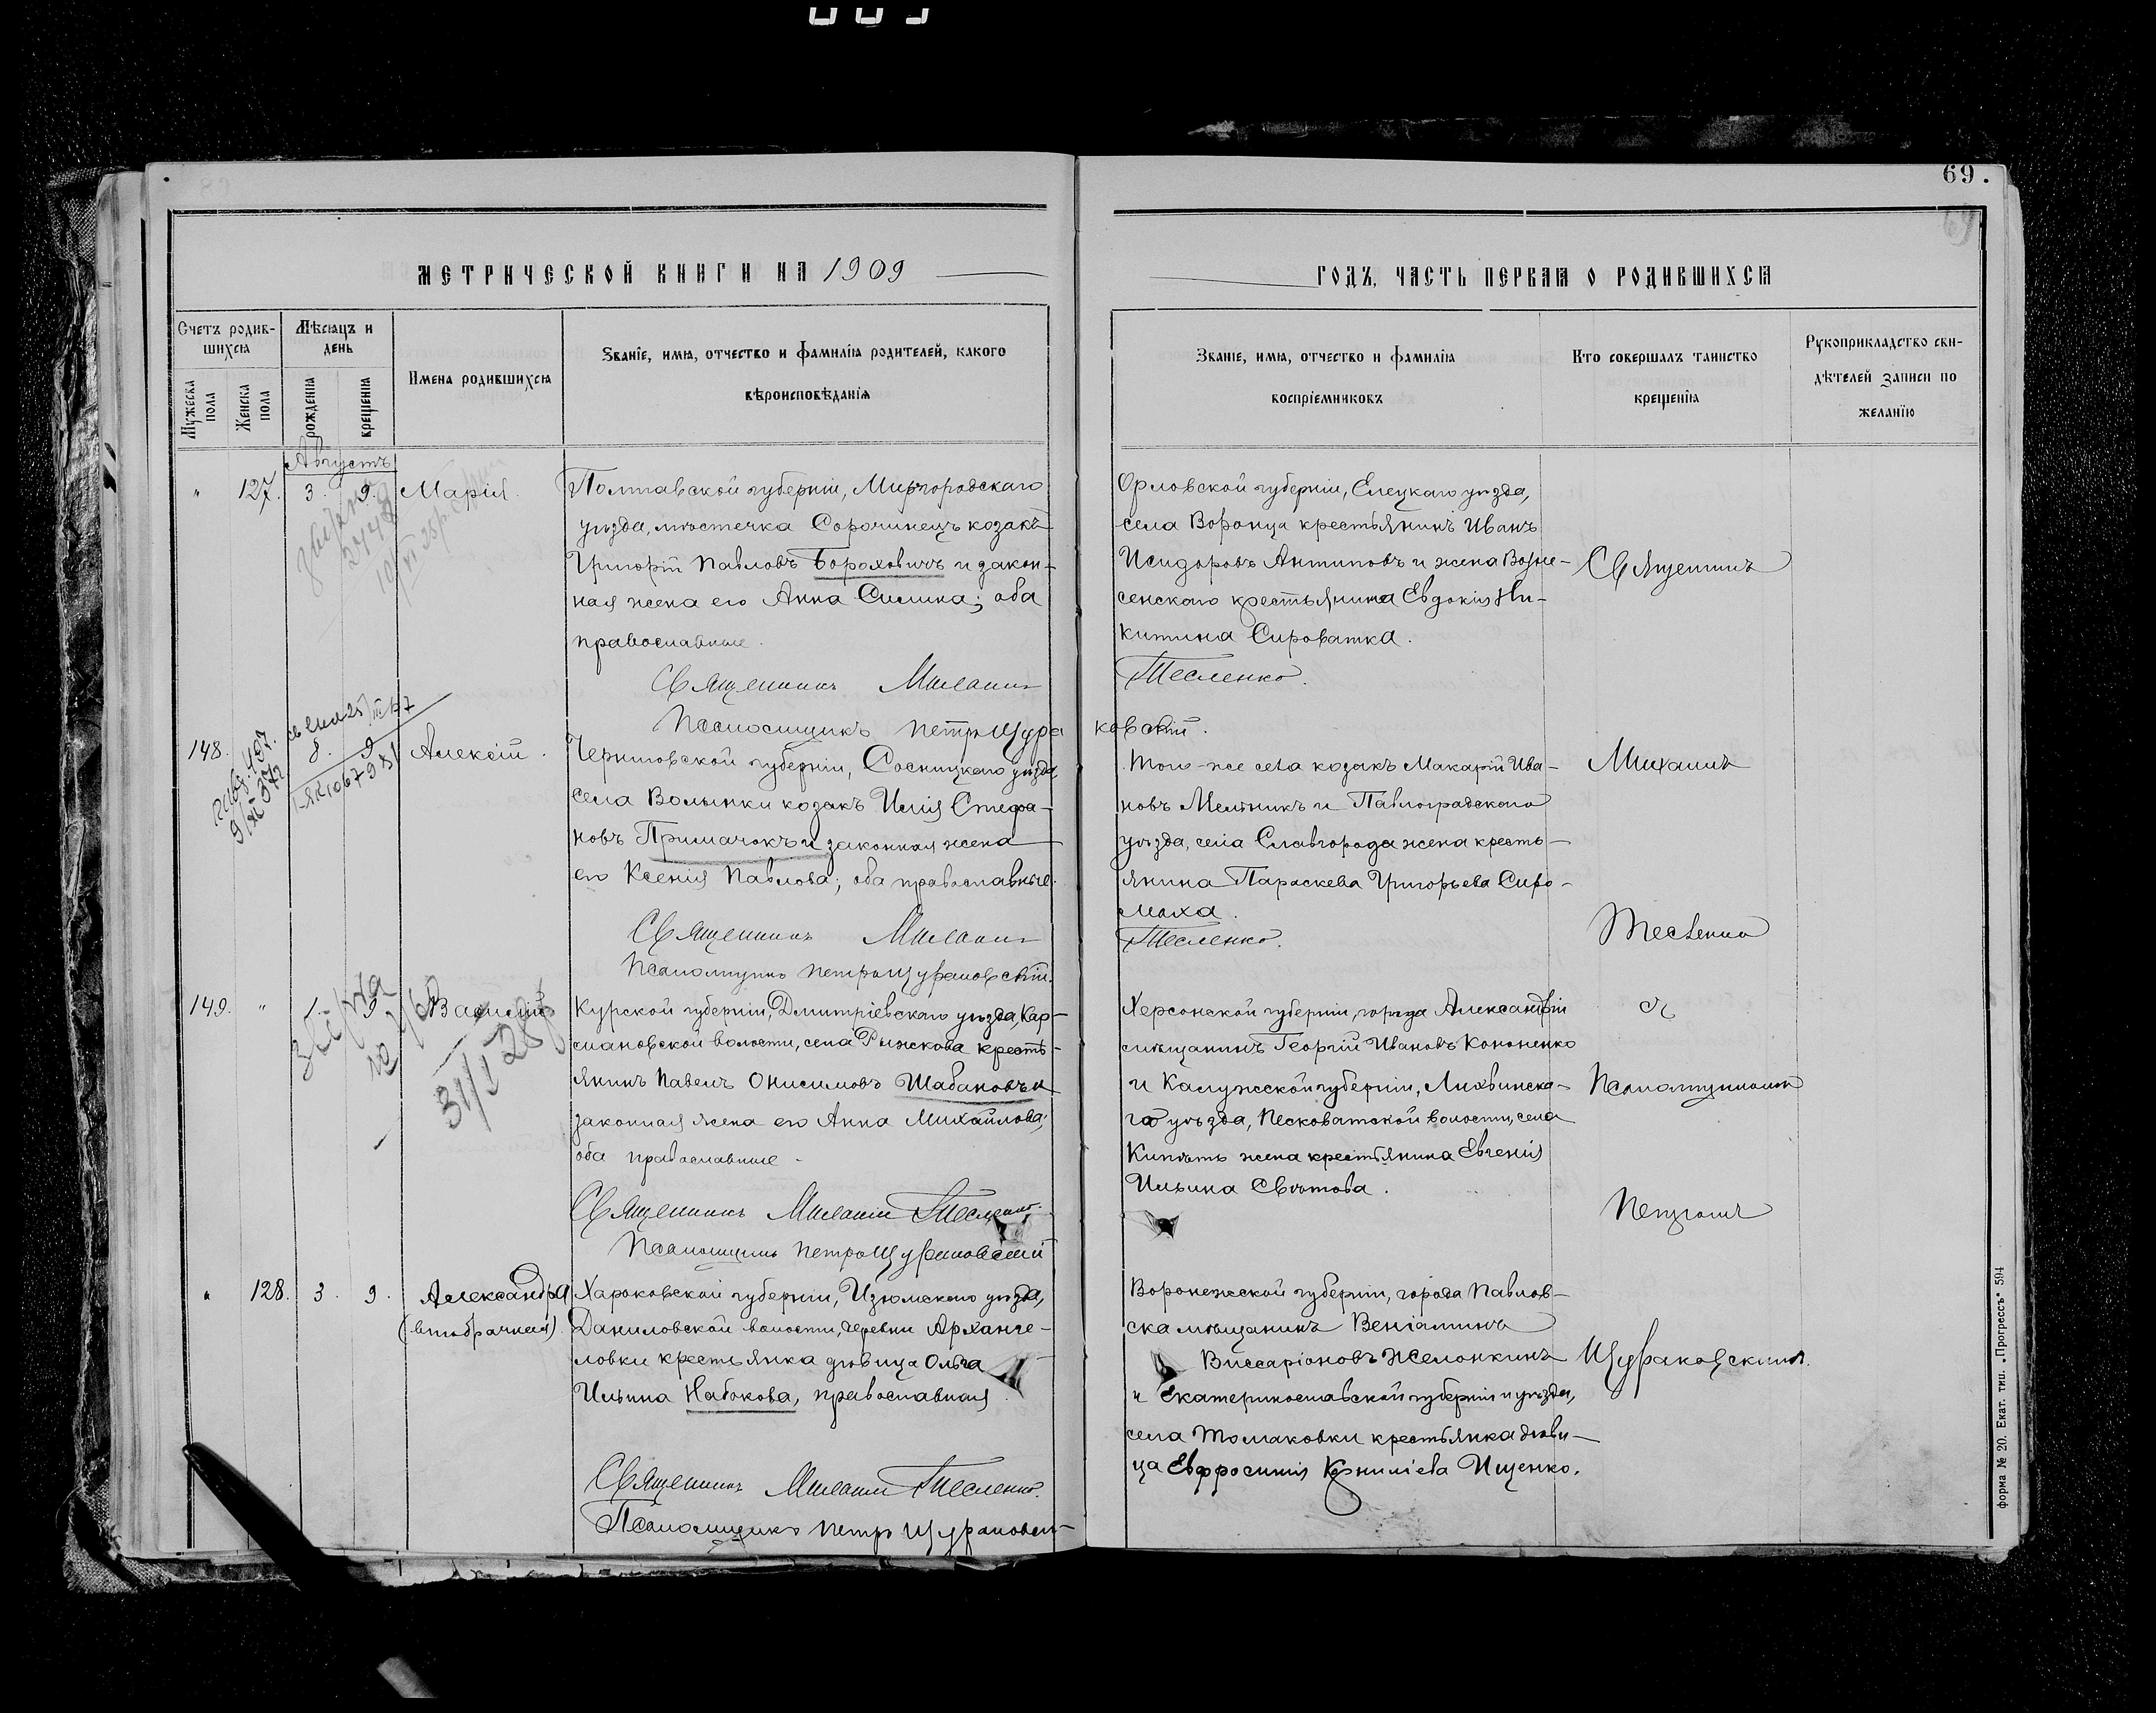 69.
МЕТРИЧЕСКОЙ КНИГИ НА 1909
ГОДЪ, ЧАСТЬ ПЕРВАЯ О РОДИВШИХСЯ
Счетъ родив-
шихся
Мужеска пола
Женска пола
Мѣсяцъ и
день
рожденія
крещенія
Имена родившихся
Званіе, имя, отчество и фамилія родителей, какого
вѣроисповѣданія
Званіе, имя, отчество и фамилія
воспріемниковъ
Кто совершалъ таинство
крещенія
Рукоприкладство сви-
дѣтелей записи по
желанію
Августъ
" 127. 3. 9. Марія.
Полтавской губерніи, Миргородскаго
уѣзда, мѣстечка Сорочинецъ козакъ
Григорій Павловъ Бороховичъ и закон-
ная жена его Анна Силина; оба
православные.
Священникъ Михаилъ
Псаломщикъ Петръ Щура
Орловской губерніи, Елецкаго уѣзда,
села Воронца крестьянинъ Иванъ
Исидоровъ Антиповъ и жена Возне-
сенскаго крестьянина Евдокія Ни-
китина Сироватка.
Тесленко.
ковскій.
148. 8. 9 Алексій.
Черниговской губерніи, Сосницкаго уѣзда,
села Волынки козакъ Илія Стефа-
новъ Примачокъ и законная жена
его Ксенія Павлова; оба православные.
Священникъ Михаилъ
Псаломщикъ Петръ Щураковскій.
Того-же села козакъ Макарій Ива-
новъ Мельникъ и Павлоградскаго
уѣзда, села Славгорода жена кресть-
янина Параскева Григорьева Сиро-
маха.
Тесленко.
149. " 1. 9 Василій
31/I 28
Курской губерніи, Дмитріевскаго уѣзда, Кар-
мановской волости, села Рыжкова кресть-
янинъ Павелъ Онисимовъ Шабановъ и
законная жена его Анна Михайлова;
оба православные.
Священникъ Михаилъ Тесленко.
Псаломщикъ Петръ Щураковскій
Херсонской губерніи, города Александріи
мѣщанинъ Георгій Ивановъ Кононенко
и Калужской губерніи, Лихвинска-
го уѣзда, Песковатской волости, села
Кипѣть жена крестьянина Евгенія
Ильина Свѣтова.
" 128. 3. 9. Александра
(внѣбрачная)
Харьковской губерніи, Изюмскаго уѣзда,
Даниловской волости, деревни Арханге-
ловки крестьянка дѣвица Ольга
Ильина Набокова, православная.
Священникъ Михаилъ Тесленко.
Псаломщикъ Петръ Щураковск-
Воронежской губерніи, города Павлов-
ска мѣщанинъ Веніаминъ
Виссаріоновъ Желонкинъ
и Екатеринославской губерніи и уѣзда,
села Томаковки крестьянка дѣви-
ца Евфросинія Корниліева Ищенко.
Священникъ
Михаилъ
Тесленко
съ
Псаломщикомъ
Петромъ
Щураковскимъ.
форма № 20. Екат. тип. „Прогрессъ" 594